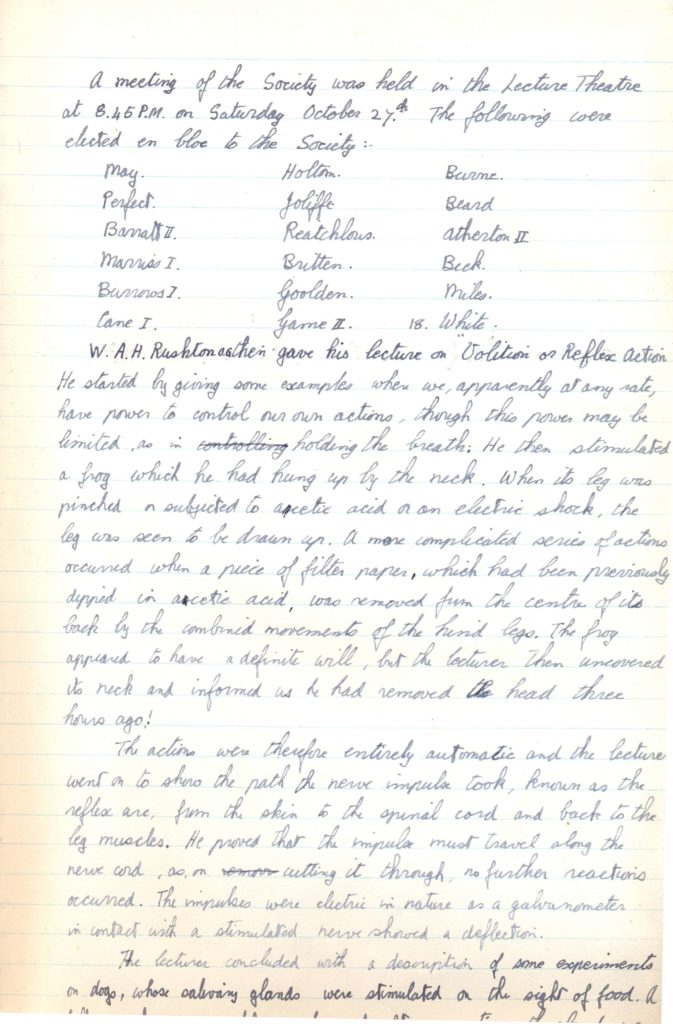 A meeting of the Society was held in the Lecture Theatre
at 8.45 P.M. on Saturday October 27th. The following were
elected en bloc to the Society:-
May. Holtom. Burne.
Perfect. Joliffe Beard
Barratt II. Reatchlous. Atherton II
Marriss I. Britten. Beck.
Burrows I. Goolden. Miles.
Cane I. Game II. 18. White.
W.A.H. Rushton then gave his lecture on "Volition or Reflex Action
He started by giving some examples when we, apparently at any rate,
have power to control our own actions, though this power may be
limited, as in controlling holding the breath. He then stimulated
a frog which he had hung up by the neck. When its leg was
pinched or subjected to acetic acid or an electric shock, the
leg was seen to be drawn up. A more complicated series of actions
occurred when a piece of filter paper, which had been previously
dipped in acetic acid, was removed from the centre of its
back by the combined movements of the hind legs. The frog
appeared to have a definite will, but the lecturer then uncovered
its neck and informed us he had removed the head three
hours ago!
The actions were therefore entirely automatic and the lecture
went on to show the path the nerve impulse took, known as the
reflex arc, from the skin to the spinal cord and back to the
leg muscles. He proved that the impulse must travel along the
nerve cord, as, on cutting it through, no further reactions
occurred. The impulses were electric in nature as a galvanometer
in contact with a stimulated nerve showed a deflection.
The lecturer concluded with a description of some experiments
on dogs, whose salivary glands were stimulated on the sight of food. A